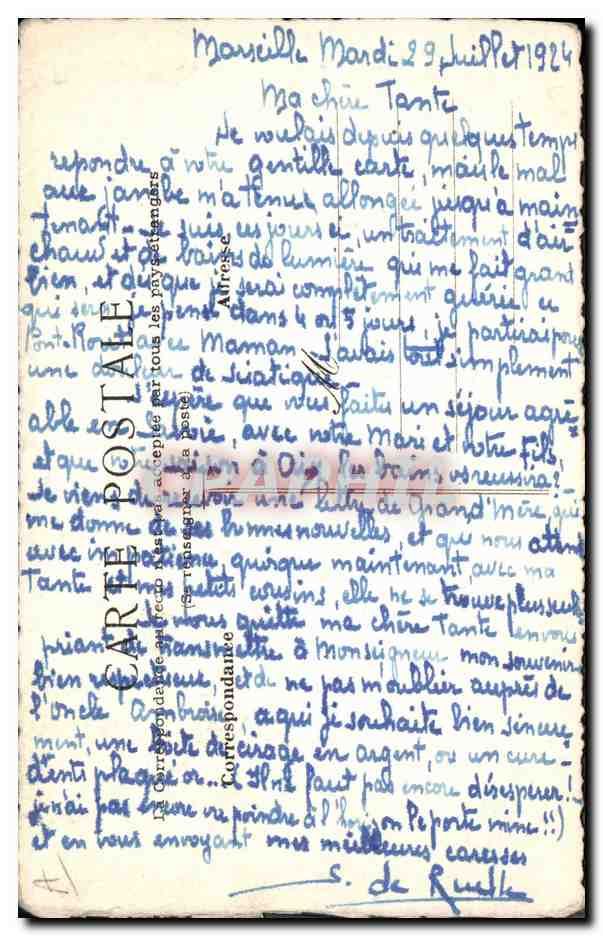 Marseille Mardi 29 Juillet 1924
Ma chère Tante
Je voulais depuis quelques temps
repondre à votre gentille carte, mais le mal
aux jambe m'a tenue allongée jusqu'à main
tenant. Je suis ces jours ci, un traitement d'air
chaud et de bains de lumière qui me fait grand
bien, et dès que je serai complètement guérie ce
qui sera je pense dans 4 ou 5 jours, je partirai pour
Pont- avec Maman. J'avais tout simplement
une douleur de sciatique
que vous faites un séjour agré-
able en, avec votre Mari et votre fils,
et que votre à Aix les bains vs reussira?
Je viens de recevoir une lettre de Grand'Mère, qui
me donne de ses bonnes nouvelles, et que nous attend
avec impatience, quoique maintenant, avec ma
Tante et mes petits cousins, elle ne se trouve plus seule
Je vous quitte ma chère Tante
priant de transmettre à Monseigneur mon souvenir
bien respectueux, et de ne pas m'oublier auprès de
l'oncle Ambroise, a qui je souhaite bien sincere
ment, une boete de cirage en argent, ou un cure-
dents plaqué or... (Il ne faut pas encore désesperer!
je n'ai pas encore vu poindre à l'horizon le porte mine!!)
et en vous envoyant mes meilleures caresses
S. de Ruelle
CARTE POSTALE
La Correspondance au recto n'est pas acceptée par tous les pays étrangers
(Se renseigner à la poste)
Correspondance
Adresse
M
CPAPHIL